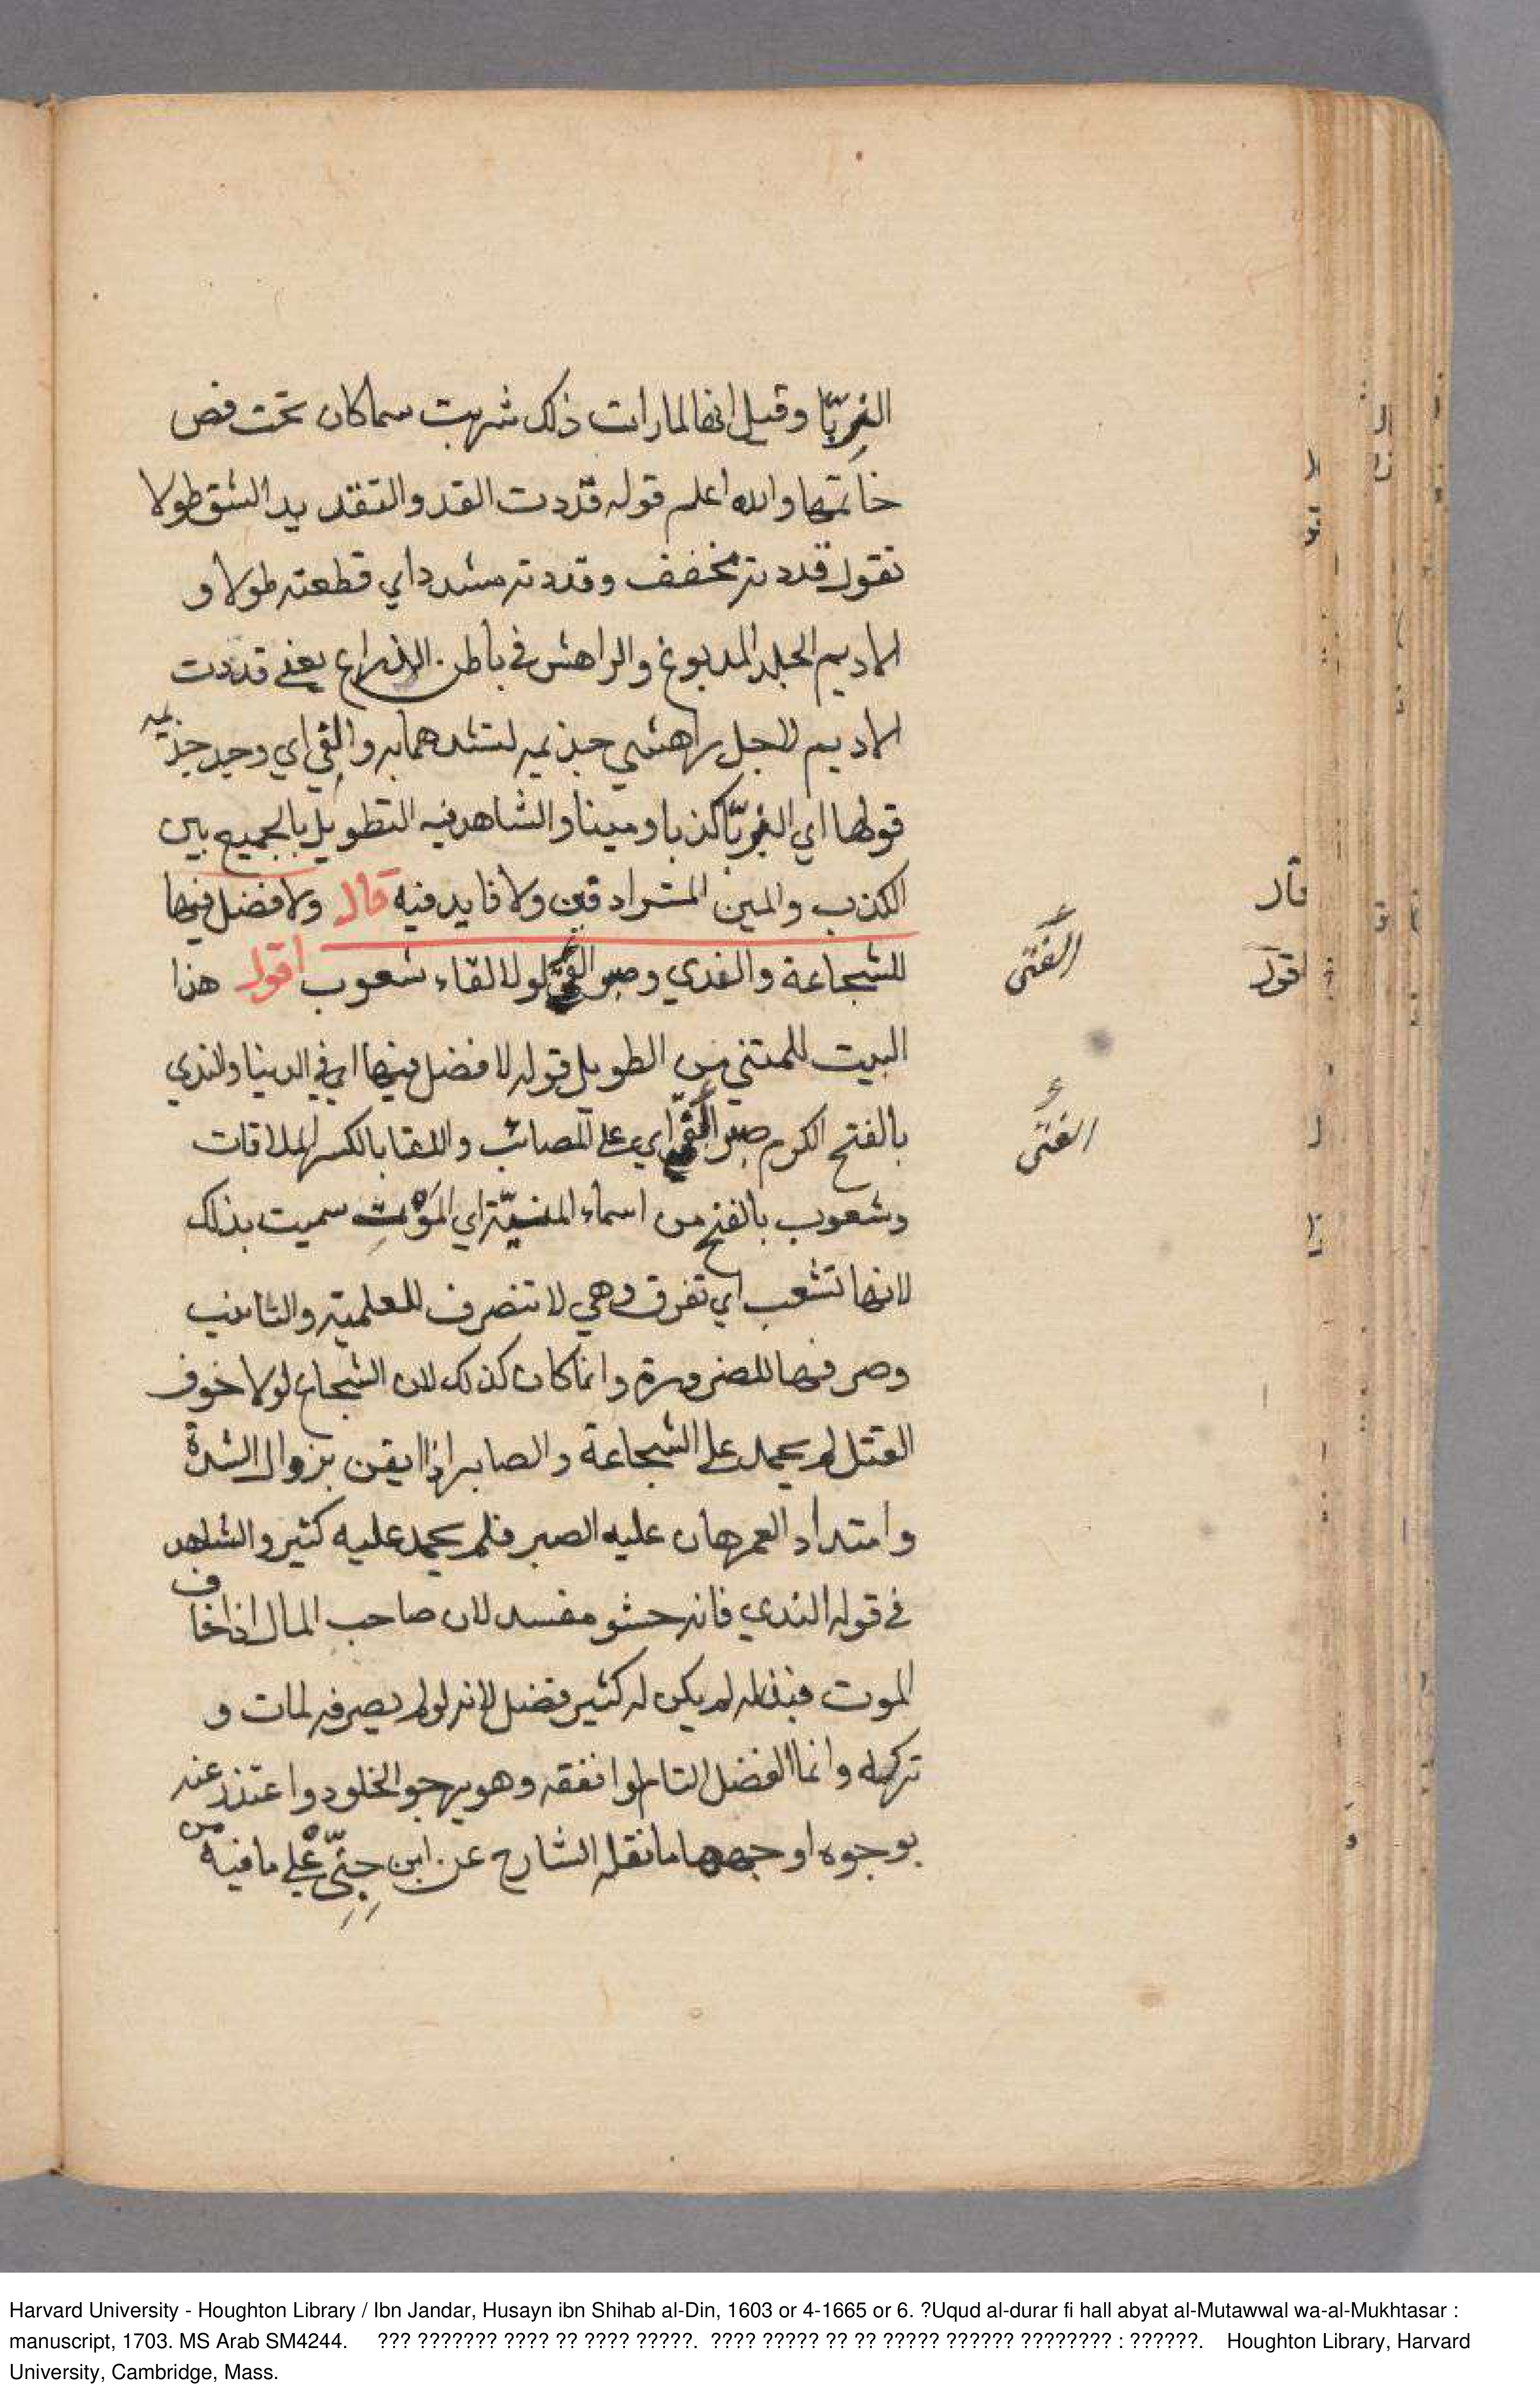 الغِربّا وقيل انها لما رات ذلك شربت سما كان تحت فص
خاتمها والله اعلم قوله قدّدت القد والتقديد الشق طولا
تقول قددته مخفف وقددته مشددا اي قطعته طولا و
الاديم الجلد المدبوغ والراهش في باطن الذراع يعني قددت
الاديم لاجل راهشي جذيمه لتشدهما به والفي اي وجد جذيمه
قولها اي الغِربّا كذبا ومينا والشاهد فيه التطويل بالجميع بين
الكذب والمين المترادفين ولا فايد فيه قال ولا فضل فيها
للشجاعة والندي وصبر الفتى لولا لقاء شعوب اقول هذا
البيت للمتنبي من الطويل قوله لا فضل فيها اي في الدنيا والندي
بالفتح الكرم صبر الفتى اي على المصائب واللقا بالكسر الملاقات
وشعوب بالفتح من اسماء المنيّة اي الموْت سميت بذلك
لانها تشعب اي تفرق وهي لا تنصرف للعلمية والتانيث
وصرفها للضرورة وانما كان كذلك لان الشجاع لولا خوف
القتل لم يحمد على الشجاعة والصابر اذا ايقن بزوال الشدة
وامتداد العمر هان عليه الصبر فلم يحمد عليه كثير والشاهد
في قوله الندي فانه حشو مفسد لان صاحب المال اذا خاف
الموت فبذله لم يكن له كثير فضل لانه لو لم يصرفه لمات و
تركه وانما الفضل التام لو انفقه وهو يرجو الخلود واعتذر عنه
بوجوه اوجهها ما نقله الشارح عن ابن جِنِّي على ما فيه من
الفَتَى
الفتَى
قال
اقول
Harvard University - Houghton Library / Ibn Jandar, Husayn ibn Shihab al-Din, 1603 or 4-1665 or 6. ?Uqud al-durar fi hall abyat al-Mutawwal wa-al-Mukhtasar :
manuscript, 1703. MS Arab SM4244. ??? ??????? ???? ?? ???? ?????. ???? ????? ?? ?? ????? ?????? ???????? : ??????. Houghton Library, Harvard
University, Cambridge, Mass.